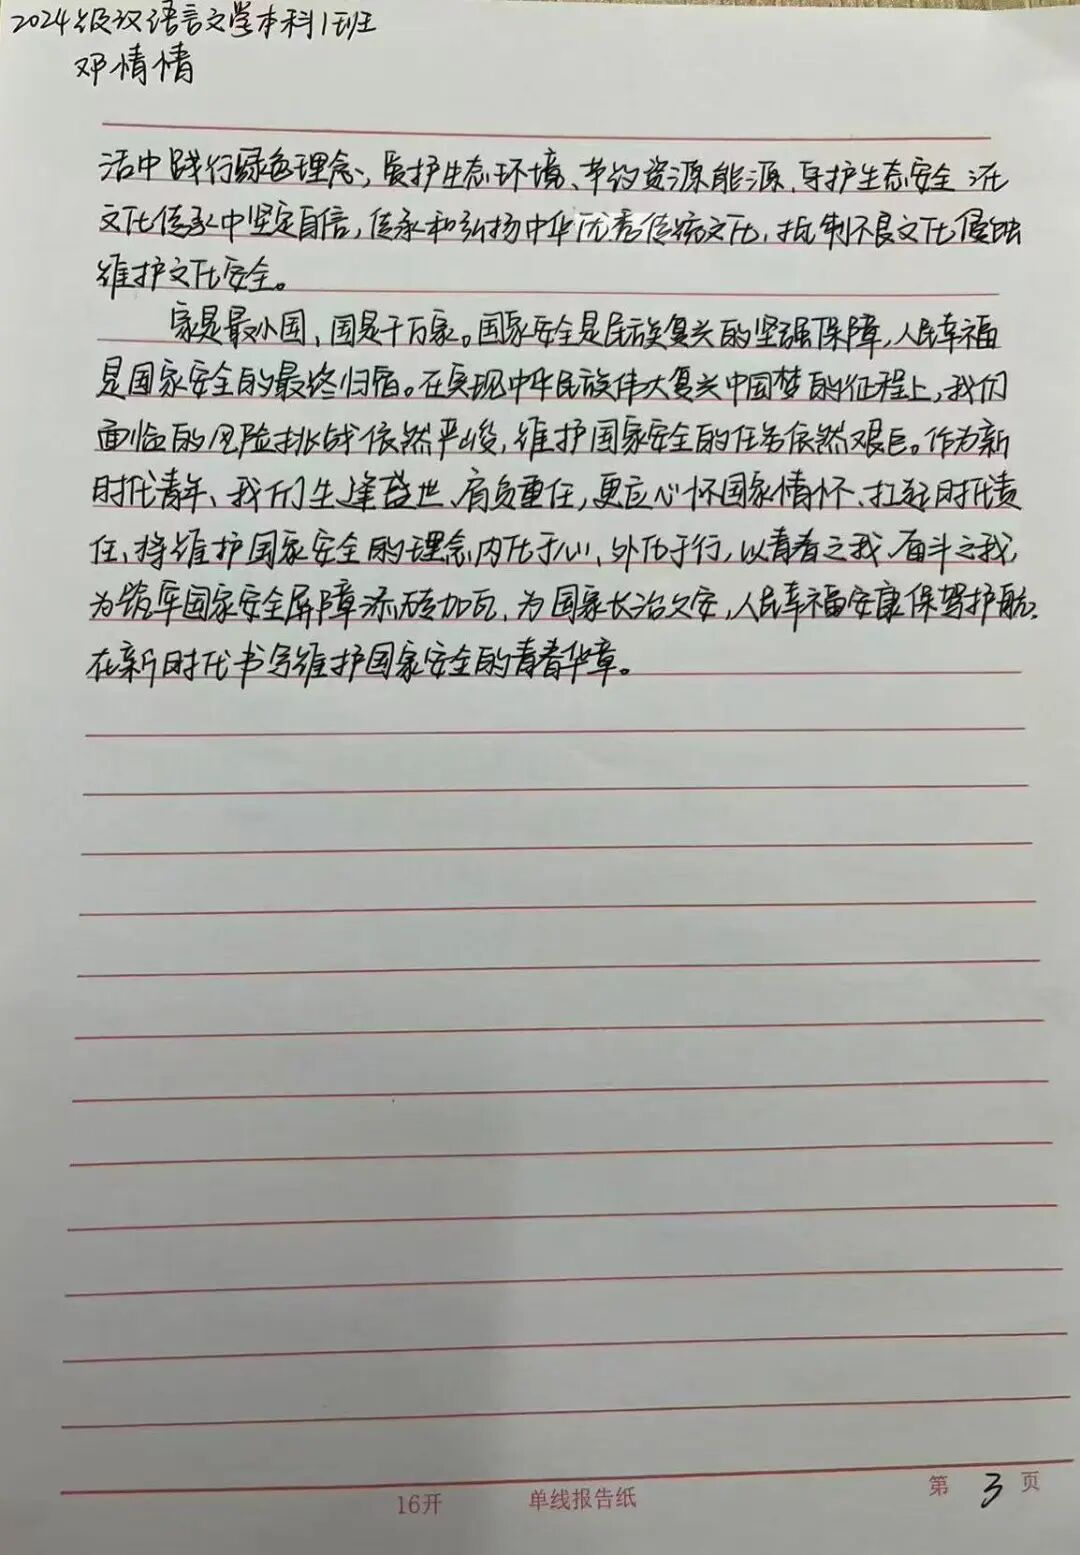 2024级汉语言文学本科1班
邓情情
活中践行绿色理念、爱护生态环境、节约资源能源、守护生态安全 在
文化传承中坚定自信，传承和弘扬中华优秀传统文化，抵制不良文化侵蚀
维护文化安全。
家是最小国，国是千万家。国家安全是民族复兴的坚强保障，人民幸福
是国家安全的最终归宿。在实现中华民族伟大复兴中国梦的征程上，我们
面临的风险挑战依然严峻，维护国家安全的任务依然艰巨。作为新
时代青年、我们生逢盛世、肩负重任，更应心怀国家情怀、扛起时代责
任、将维护国家安全的理念内化于心、外化于行，以青春之我、奋斗之我，
为筑牢国家安全屏障添砖加瓦，为国家长治久安，人民幸福安康保驾护航，
在新时代书写维护国家安全的青春华章。
16开 单线报告纸 第 3 页